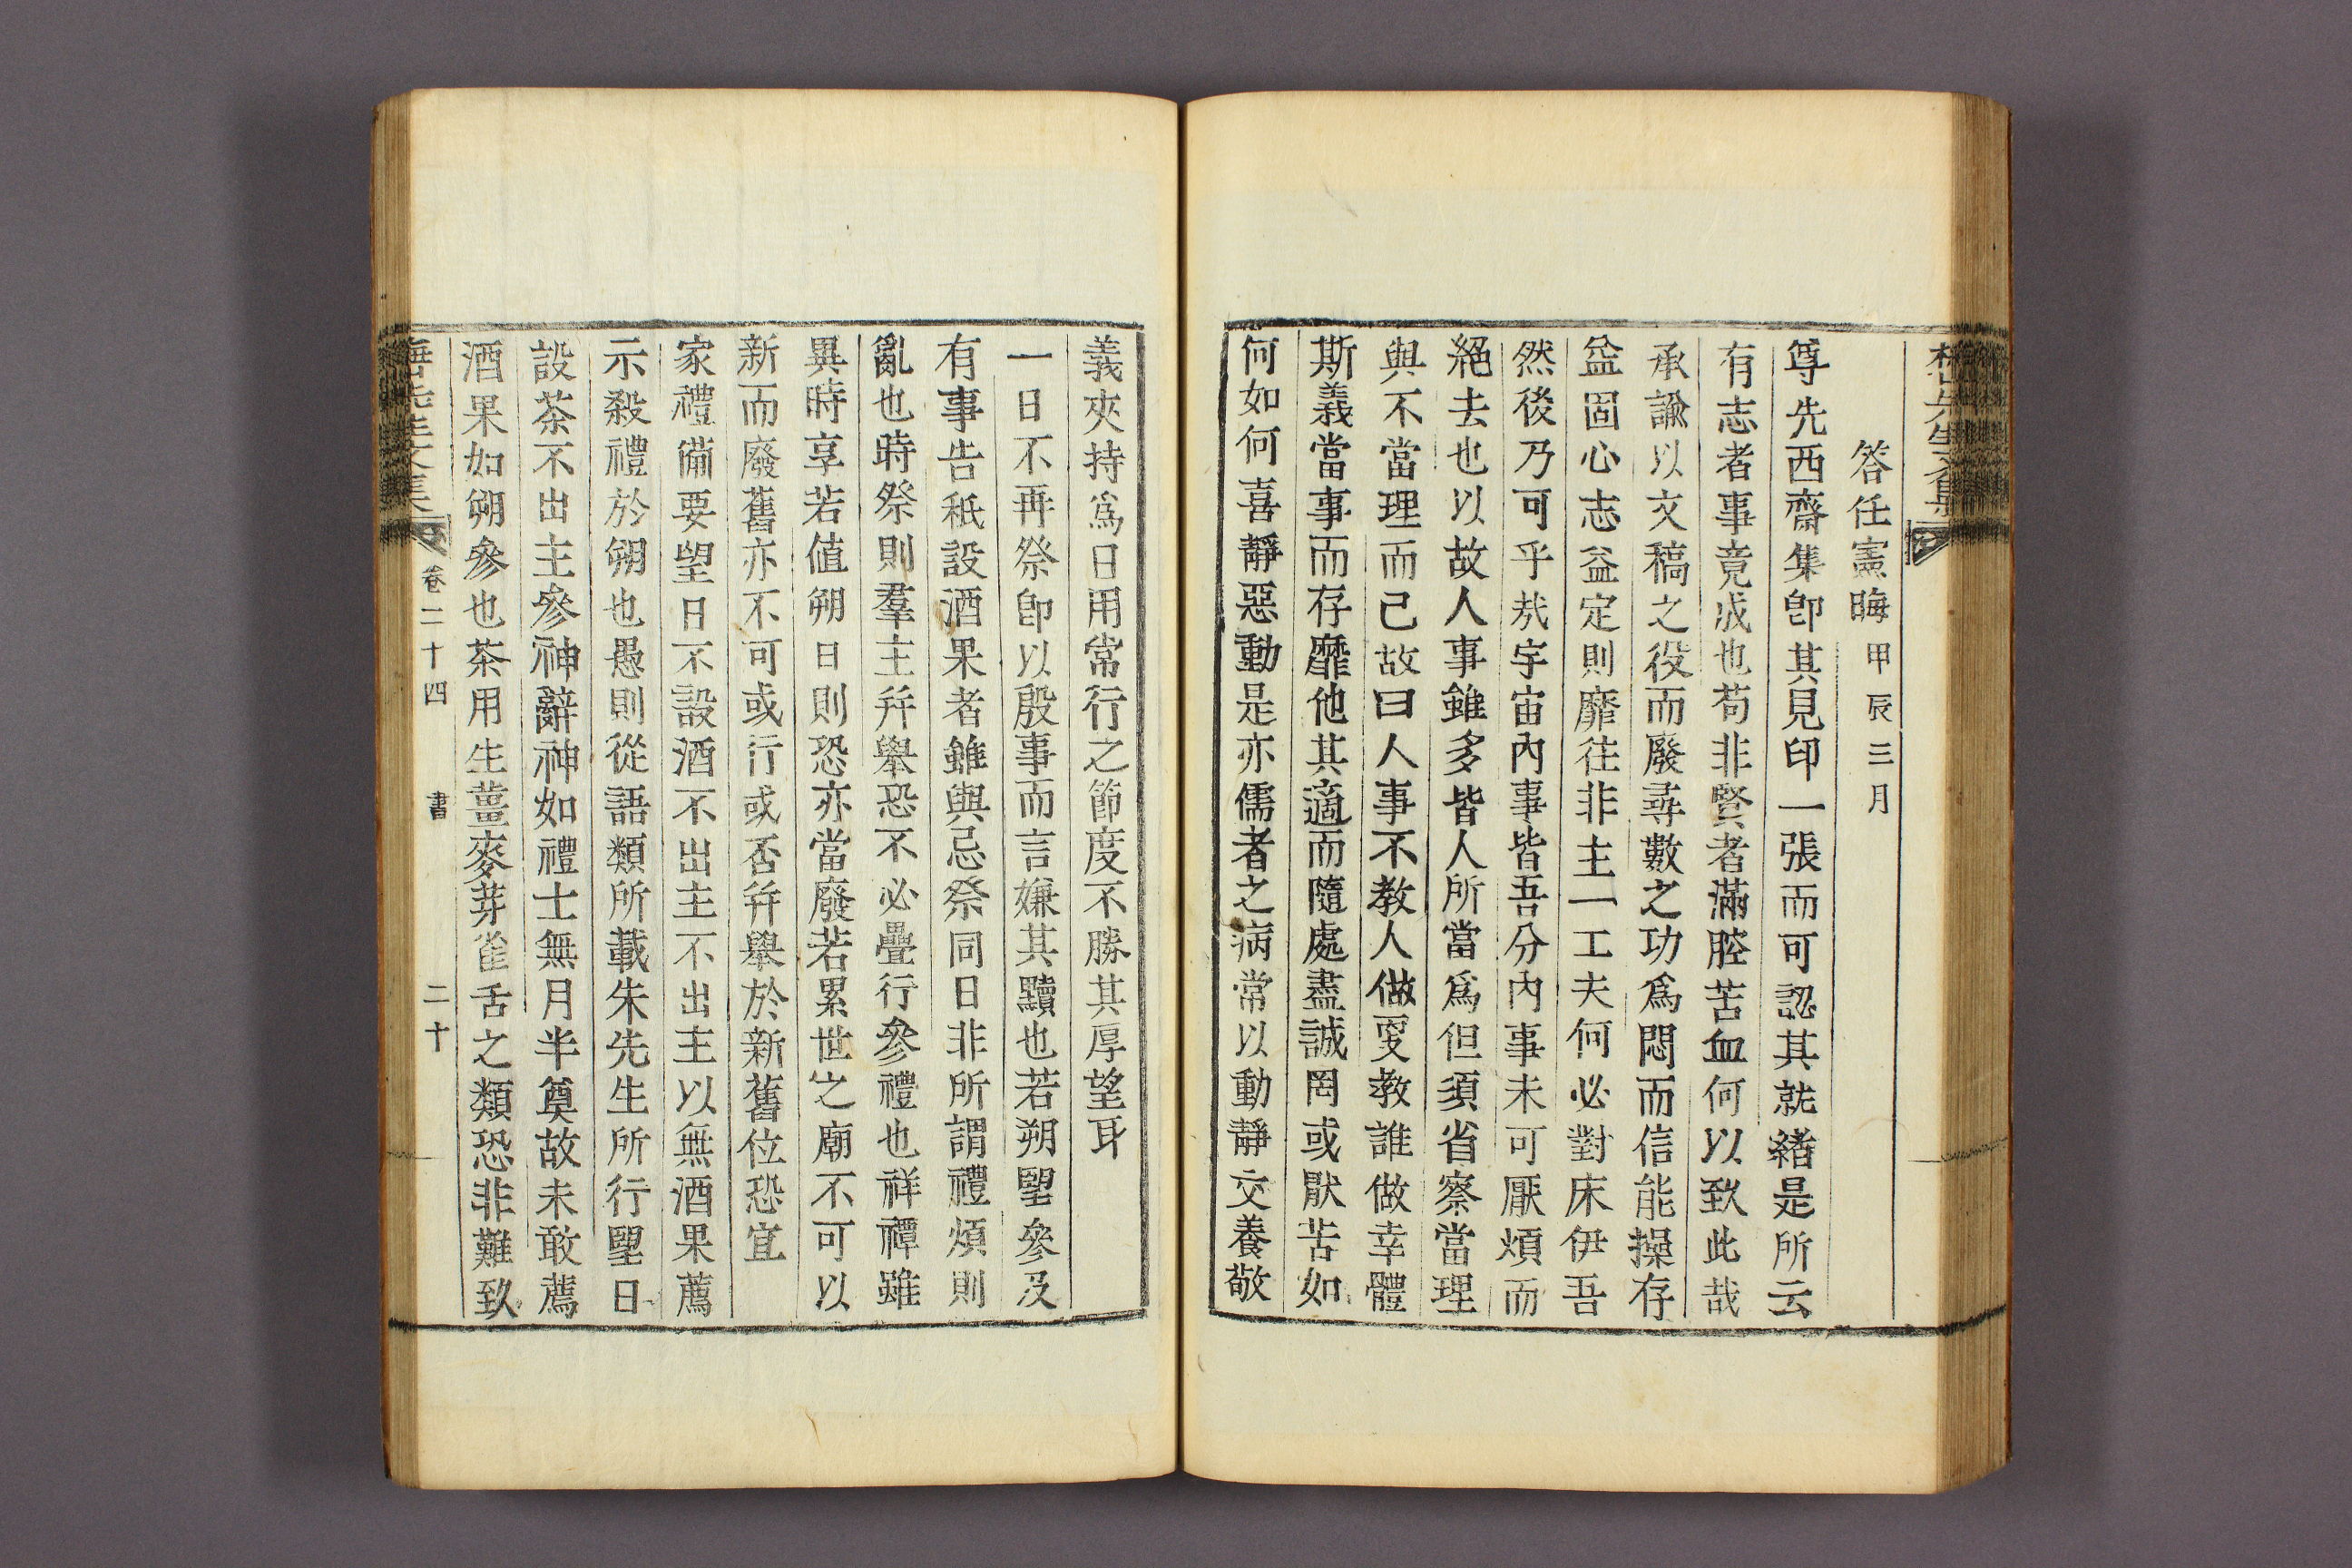 答任憲晦 甲辰三月
尊先西齋集卽其見印一張而可認其就緖是所云
有志者事竟成也苟非賢者滿腔苦血何以致此哉
承諭以文稿之役而廢尋數之功爲悶而信能操存
益固心志益定則靡往非主一工夫何必對床伊吾
然後乃可乎㢤宇宙內事皆吾分內事未可厭煩而
絕去也以故人事雖多皆人所當爲但須省察當理
與不當理而已故曰人事不教人做更教誰做幸體
斯義當事而存靡他其適而隨處盡誠罔或厭苦如
何如何喜靜惡動是亦儒者之病常以動靜交養敬
義夾持爲日用常行之節度不勝其厚望耳
一日不再祭卽以殷事而言嫌其黷也若朔望參及
有事告祗設酒果者雖與忌祭同日非所謂禮煩則
亂也時祭則羣主幷舉恐不必疊行參禮也祥禫雖
異時享若値朔日則恐亦當廢若累世之廟不可以
新而廢舊亦不可或行或否幷舉於新舊位恐宜
家禮備要望日不設酒不出主不出主以無酒果薦
示殺禮於朔也愚則從語類所載朱先生所行望日
設茶不出主參神辭神如禮士無月半奠故未敢薦
酒果如朔參也茶用生薑麥芽雀舌之類恐非難致
先生文集 卷二十四 書 二十